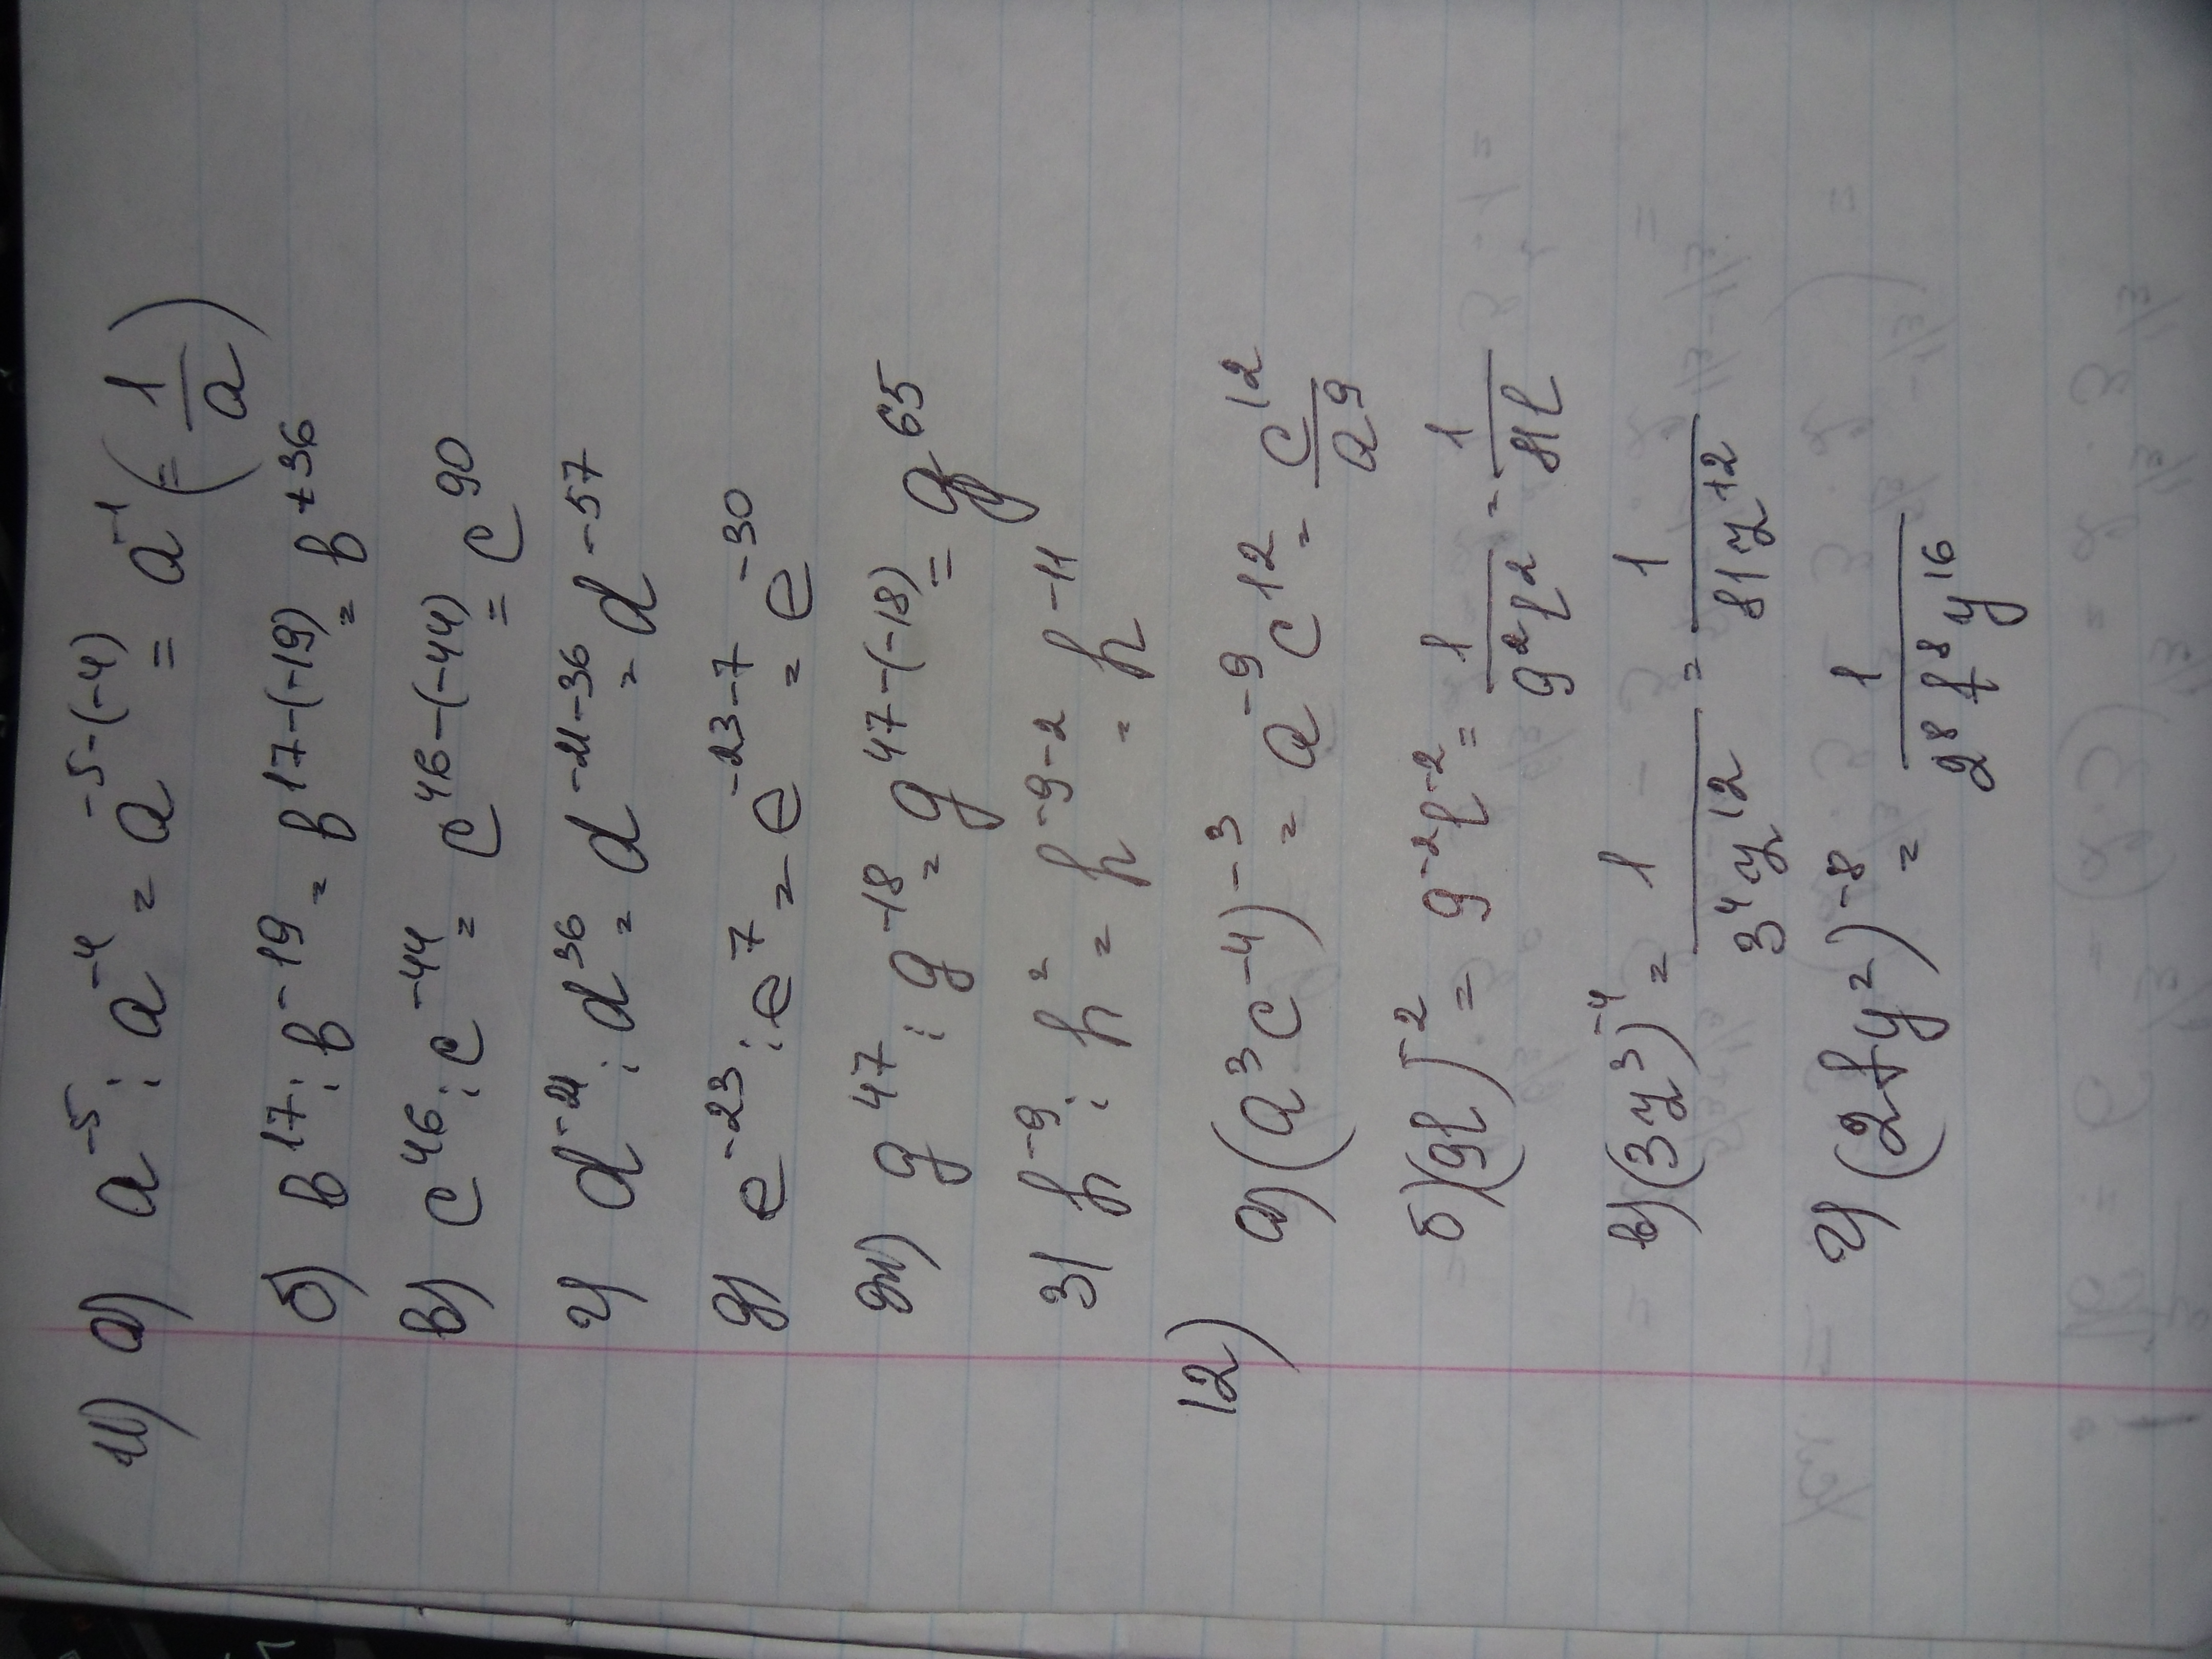 11) а) a⁻⁵ : a⁻⁴ = a⁻⁵⁻⁽⁻⁴⁾ = a⁻¹ (= 1/a)
б) в¹⁷ : в⁻¹⁹ = в¹⁷⁻⁽⁻¹⁹⁾ = в⁺³⁶
в) c⁴⁶ : c⁻⁴⁴ = c⁴⁶⁻⁽⁻⁴⁴⁾ = c⁹⁰
г) d⁻²¹ : d³⁶ = d⁻²¹⁻³⁶ = d⁻⁵⁷
д) e⁻²³ : e⁷ = e⁻²³⁻⁷ = e⁻³⁰
ж) g⁴⁷ : g⁻¹⁸ = g⁴⁷⁻⁽⁻¹⁸⁾ = g⁶⁵
з) h⁻⁹ : h² = h⁻⁹⁻² = h⁻¹¹
12)
а) (a³c⁻⁴)⁻³ = a⁻⁹c¹² = c¹²/a⁹
б) (9l)⁻² = 9⁻²l⁻² = 1/9²l² = 1/81l
в) (3y³)⁻⁴ = 1/3⁴y¹² = 1/81y¹²
г) (2fy²)⁻⁸ = 1/2⁸f⁸y¹⁶